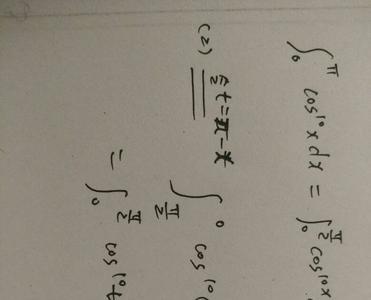 ∫₀^π cos¹⁰x dx = ∫₀^(π/2) cos¹⁰x
(2) 令t=π-x ∫_(π/2)^0 cos¹⁰(
= ∫₀^(π/2) cos¹⁰t